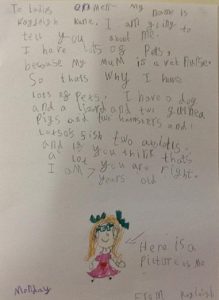 To ladies and men my name is
Kayleigh Kane, I am going to
tell you about me.
I have lots of pets,
because my mum is a vet nurse.
So thats why I have
lots of pets. I have a dog
and a lizard and two guinea
pigs and two hamsters and
and two axolotls.
a lot you think thats
I am 7 you are right.
years old
Here is a
picture of me
Monday
From Kayleigh